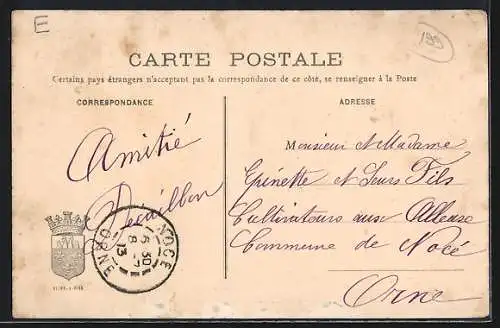 E
199
CARTE POSTALE
Certains pays étrangers n'acceptant pas la correspondance de ce côté, se renseigner à la Poste
CORRESPONDANCE
ADRESSE
Amitié
Monsieur et Madame
Epinette et Leurs Fils
Cultivateurs aux
Commune de Nocé
Orne
NOCÉ
5 30
8
13
ORNE